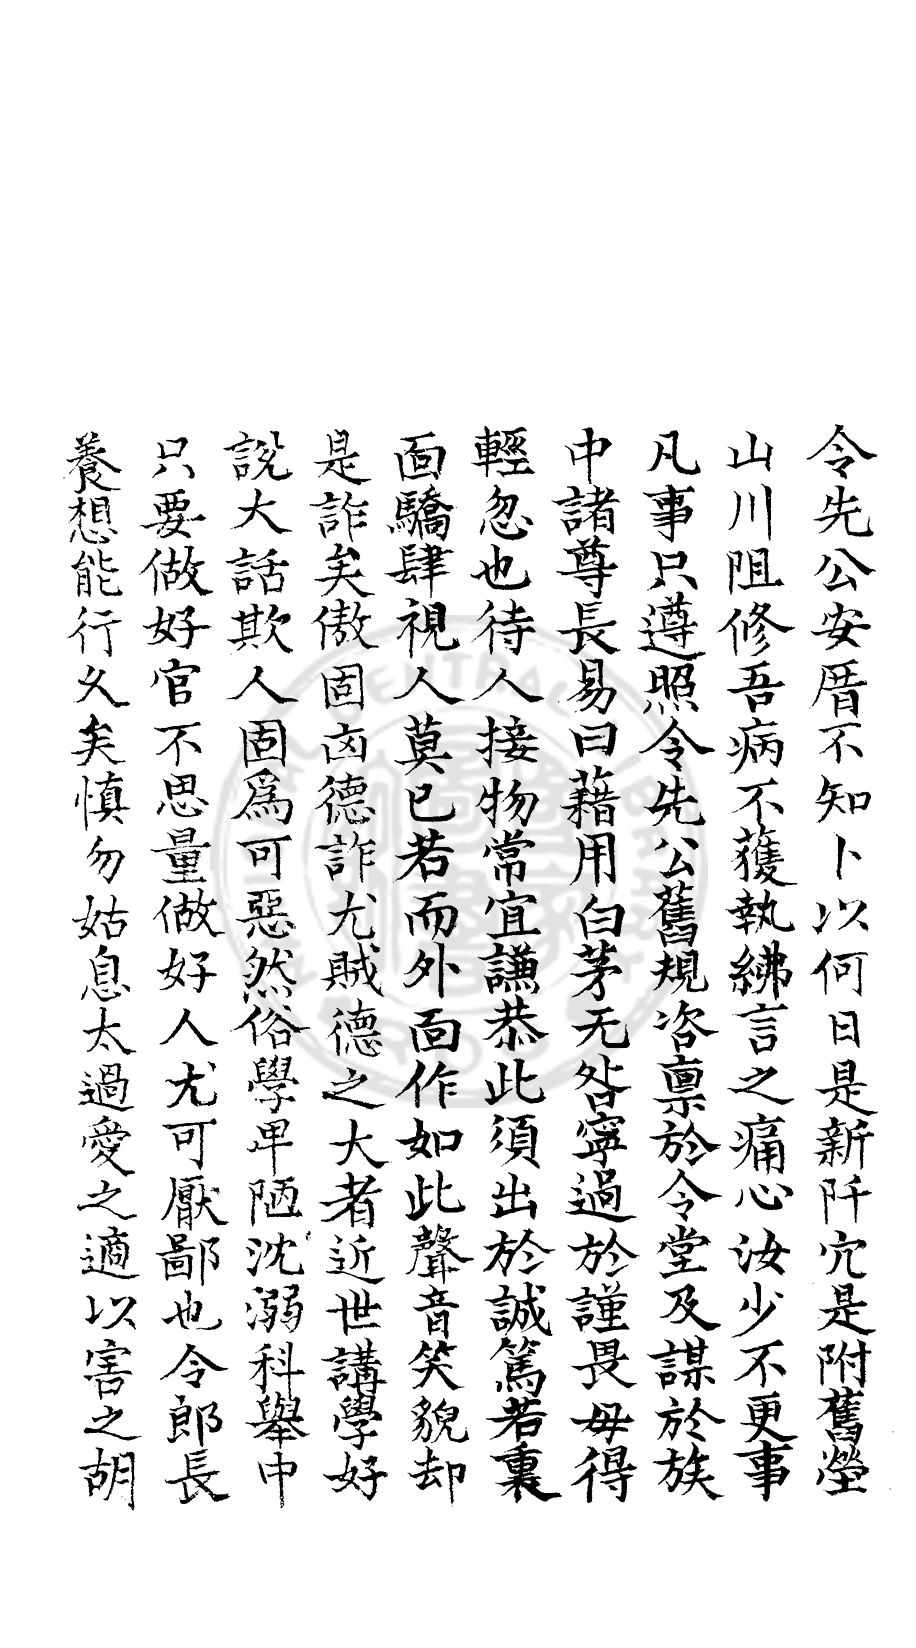 令先公安厝不知卜以何日是新阡穴是附舊塋
山川阻修吾病不獲執紼言之痛心汝少不更事
凡事只遵照令先公舊規咨稟於令堂及謀於族
中諸尊長易曰藉用白茅无咎寧過於謹畏毋得
輕忽也待人接物常宜謙恭此須出於誠篤若裏
面驕肆視人莫已若而外面作如此聲音笑貌却
是詐矣傲固凶德詐尤賊德之大者近世講學好
說大話欺人固爲可惡然俗學卑陋沈溺科舉中
只要做好官不思量做好人尤可厭鄙也令郎長
養想能行文矣慎勿姑息太過愛之適以害之胡